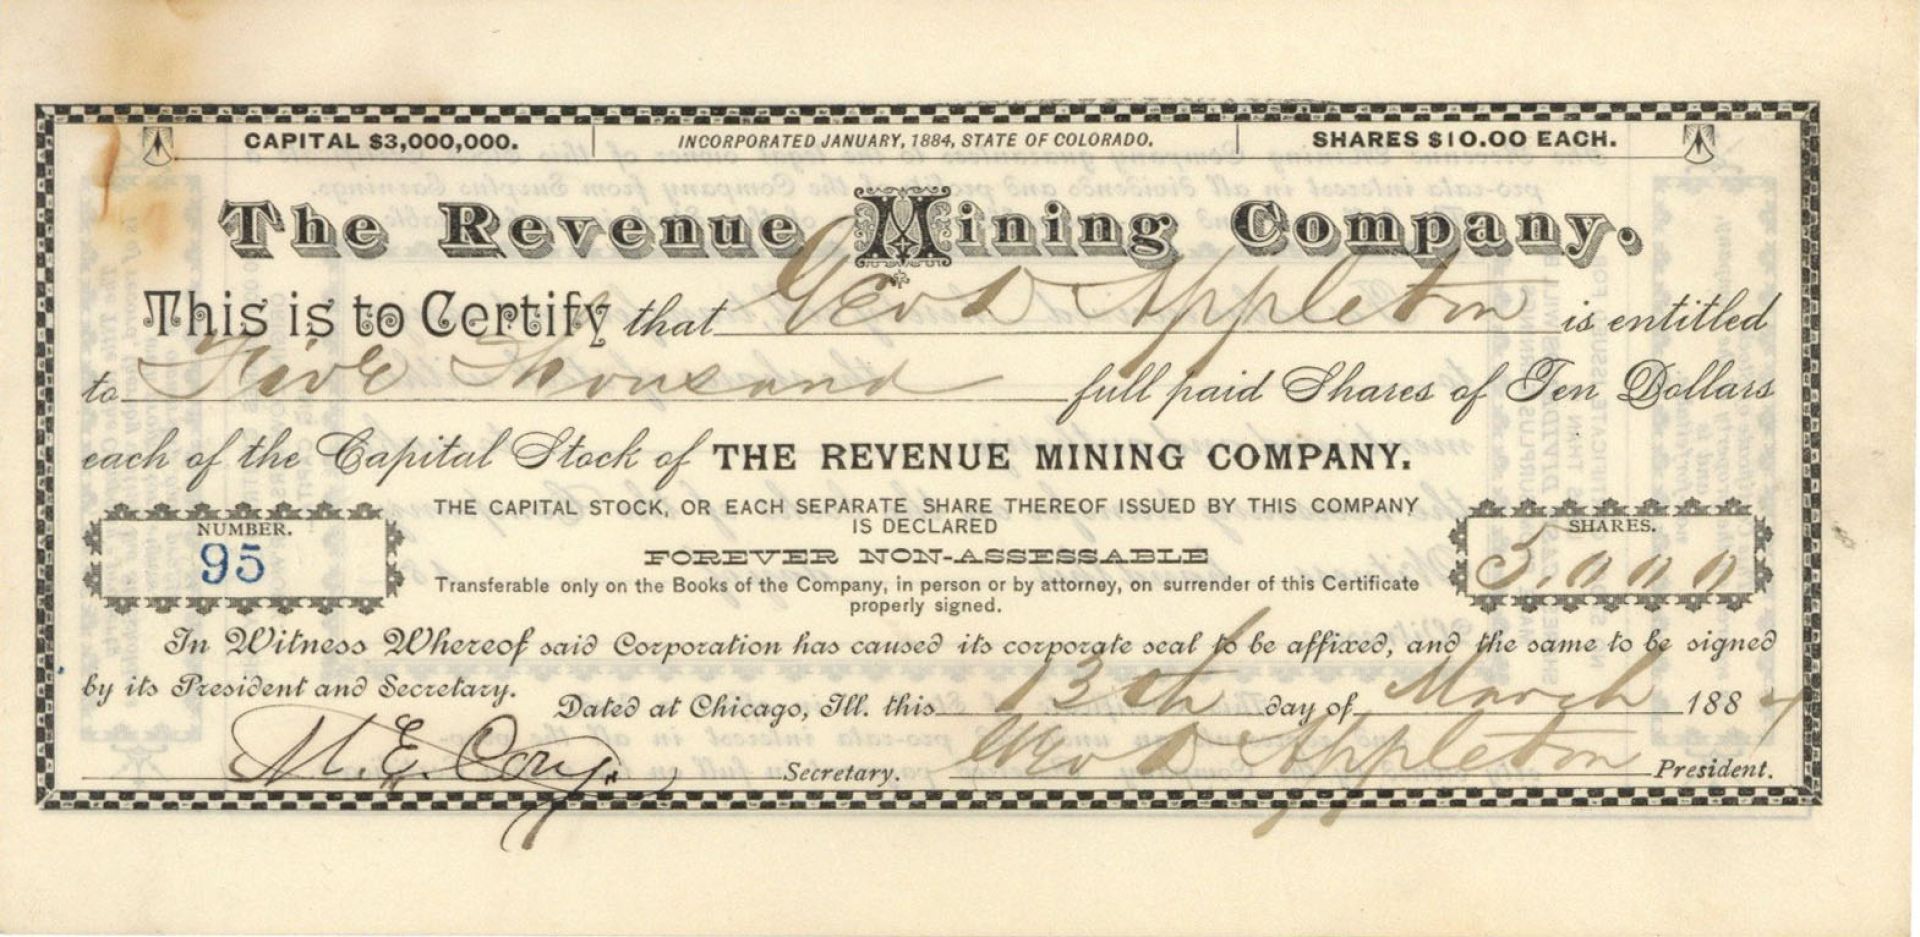 CAPITAL $3,000,000. INCORPORATED JANUARY, 1884, STATE OF COLORADO. SHARES $10.00 EACH.
The Revenue Mining Company.
This is to Certify that Geo D Appleton is entitled
to Five Thousand full paid Shares of Ten Dollars
each of the Capital Stock of THE REVENUE MINING COMPANY.
THE CAPITAL STOCK, OR EACH SEPARATE SHARE THEREOF ISSUED BY THIS COMPANY
IS DECLARED
FOREVER NON-ASSESSABLE
Transferable only on the Books of the Company, in person or by attorney, on surrender of this Certificate
properly signed.
NUMBER.
95
SHARES.
5,000
In Witness Whereof said Corporation has caused its corporate seal to be affixed, and the same to be signed
by its President and Secretary.
Dated at Chicago, Ill. this 13th day of March 1884
M. E. Cory. Secretary. Geo D Appleton President.